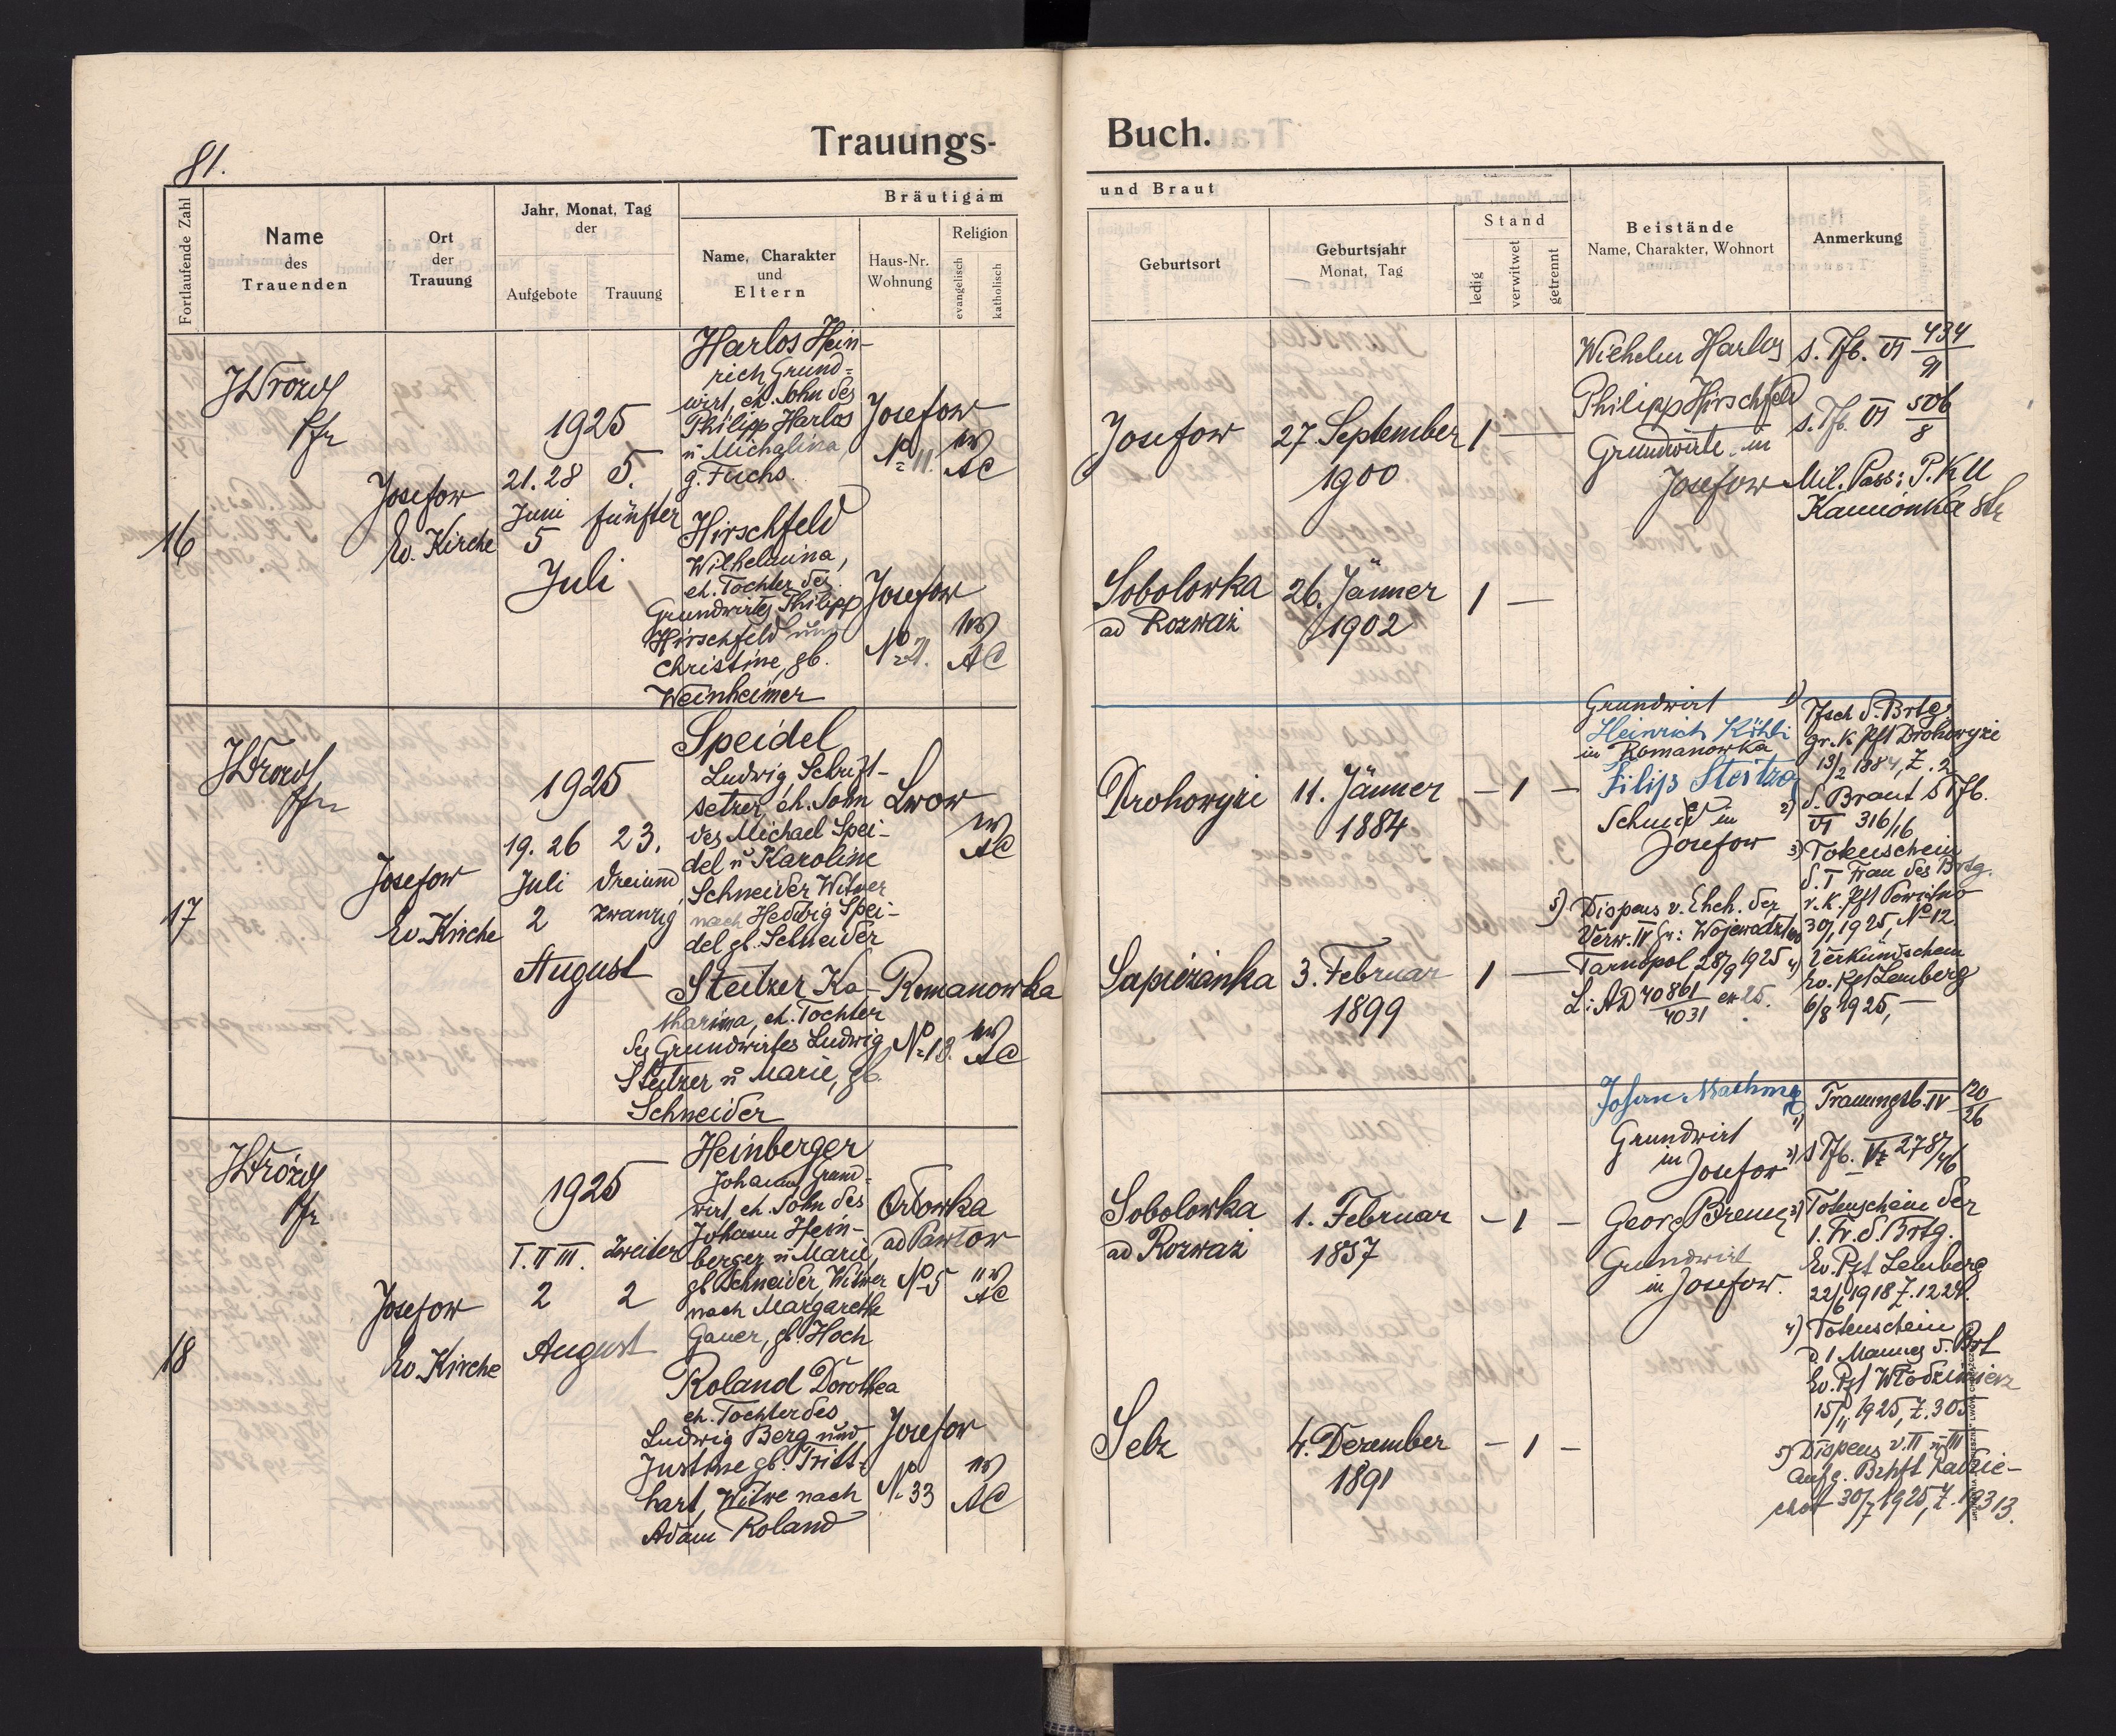 81.
Trauungs-
Buch.
Fortlaufende Zahl
Name
des
Trauenden
Ort
der
Trauung
Jahr, Monat, Tag
der
Aufgebote
Trauung
Bräutigam
Name, Charakter
und
Eltern
Haus-Nr.
Wohnung
Religion
evangelisch
katholisch
und Braut
Geburtsort
Geburtsjahr
Monat, Tag
Stand
ledig
verwitwet
getrennt
Beistände
Name, Charakter, Wohnort
Anmerkung
16
Pfr
Josefow
Ev. Kirche
1925
21. 28 5.
Juni fünfter
5
Juli
Harlos Hein-
rich Grund=
wirt, eh. Sohn des
Philipp Harlos
u Michalina,
g. Fuchs.
Josefow
No 11.
AC
Hirschfeld
Wilhelmina,
eh. Tochter des
Grundwirtes Philipp
Hirschfeld und
Christine, gb.
Weinheimer
Josefow
No 21.
AC
Josefow
27. September
1900
1 —
Sobolowka
ad Rozważ
26. Jänner
1902
1 —
Wilhelm Harlos
Philipp Hirschfeld
Grundwirte in
Josefow
s. Tfb. VI 434/91
s. Tfb. VI 506/8
Mil. Pass: P.K.U
Kamionka Str
17
Pfr
Josefow
Ev. Kirche
1925
19. 26 23.
Juli dreiund
2 zwanzig
August
Speidel
Ludwig Schrift-
setzer, eh. Sohn
des Michael Spei-
del u Karoline
Schneider Witwer
nach Hedwig Spei-
del gb. Schneider
Lwow
AC
Steitzer Ka-
tharina, eh. Tochter
des Grundwirtes Ludwig
Steitzer u Marie, gb.
Schneider
Romanowka
No 13.
AC
Drohowyże
11. Jänner
1884
— 1 —
Sapieżanka
3. Februar
1899
1 —
Grundwirt
Heinrich
in Romanowka
Filip
Schmied in
Josefow
5) Dispens v. Eheh. der
Verw. IV Gr: Wojewodztwo
Tarnopol 28/9 1925
L: AD 40861/4031 ex 25.
1) Tfsch d. Brtgs
gr. k. Pft Drohowyże
13/2 1884, Z. 2
2) d. Braut s Tfb.
VI 316/16
3) Totenschein
d. I Frau des Brtg.
r. k. Pft
30/1 1925, No 12
4) Verkündschein
ev. Pft Lemberg
6/8 1925, —
18
Pfr
Josefow
Ev. Kirche
1925
I. II III. zweiter
2 2
August
Heinberger
Johann, Grund-
wirt, eh. Sohn des
Johann Hein-
berger u Marie,
gb Schneider, Witwer
nach Margarethe
Gauer, gb. Hoch
ad Pawłow
No 5
AC
Roland Dorothea
eh. Tochter des
Ludwig Berg und
Justine gb. Tritt-
hart, Witwe nach
Adam Roland
Josefow
No 33
AC
Sobolowka
ad Rozważ
1. Februar
1857
— 1 —
Selz
4. Dezember
1891
— 1 —
Johann
Grundwirt
in Josefow
Georg
Grundwirt
in Josefow.
1) Trauungsb. IV 120/26
2) s Tfb. 278/46
3) Totenschein der
1. Fr. d. Brtg.
Ev. Pft Lemberg
22/6 1918 Z. 1224.
4) Totenschein
d. 1 Mannes d. Brt
Ev. Pft Włodzimierz
15/11 1925, Z. 305
5) Dispens v. II u III
Aufg. Bzhft Radzie-
chow 30/7 1925, Z. 19313.